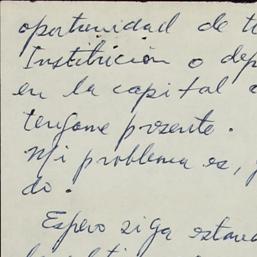 oportunidad de t
Institución o dep
en la capital
tengame presente.
Mi problema es,
do.
Espero siga estand